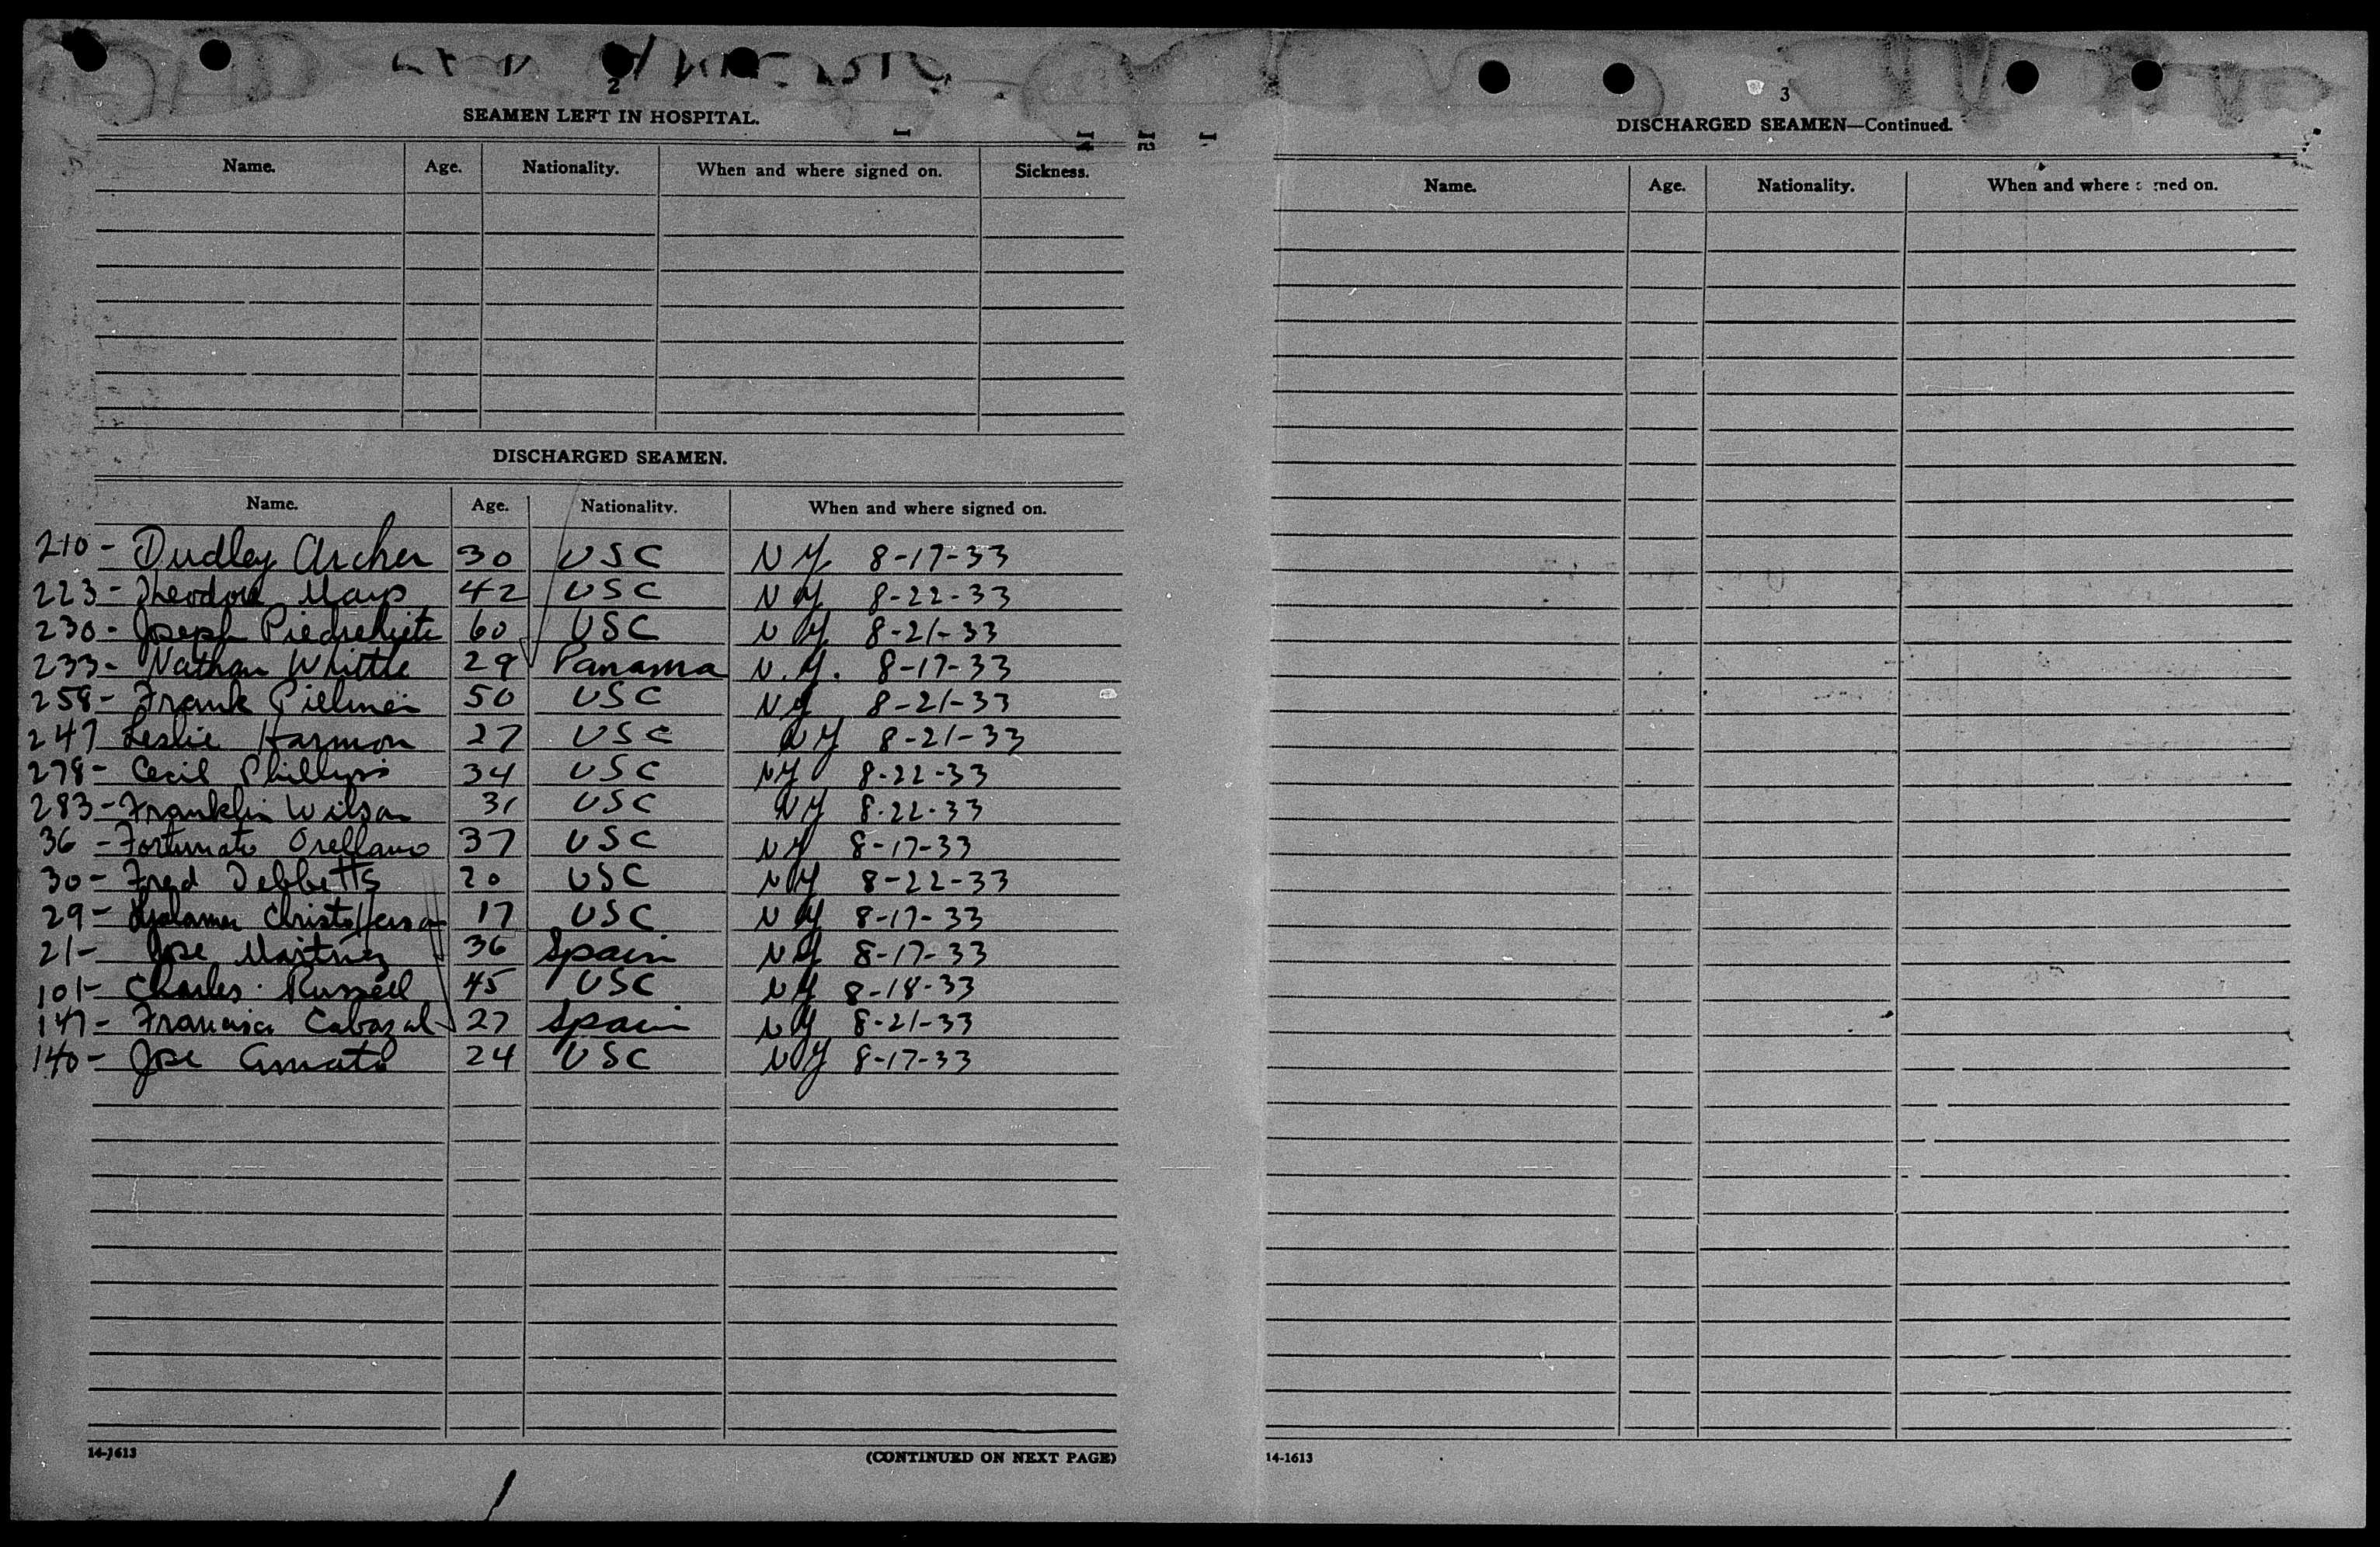 2
SEAMEN LEFT IN HOSPITAL.
Name. Age. Nationality. When and where signed on. Sickness.
DISCHARGED SEAMEN.
Name. Age. Nationality. When and where signed on.
210 - Dudley Archer 30 USC NY 8-17-33
223 - Theodore Mays 42 USC NY 8-22-33
230 - Joseph 60 USC NY 8-21-33
233 - Nathan Whittle 29 Panama N.Y. 8-17-33
258 - Frank 50 USC NY 8-21-33
247 Leslie Harmon 27 USC NY 8-21-33
278 - Cecil Phillips 34 USC NY 8-22-33
283 - Franklin Wilson 31 USC NY 8-22-33
36 - Fortunato Orellano 37 USC NY 8-17-33
30 - Fred Tebbetts 20 USC NY 8-22-33
29 - Christofferson 17 USC NY 8-17-33
21 - Jose Martinez 36 Spain NY 8-17-33
101 - Charles Russell 45 USC NY 8-18-33
147 - Francisco Cabazal 27 Spain NY 8-21-33
140 - Joe Amato 24 USC NY 8-17-33
14-1613 (CONTINUED ON NEXT PAGE)
3
DISCHARGED SEAMEN—Continued.
Name. Age. Nationality. When and where med on.
14-1613